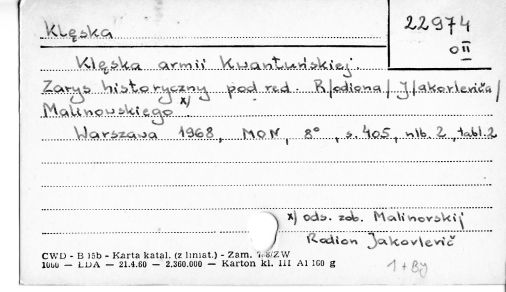 Klęska
22974
O II
Klęska armii Kwantuńskiej.
Zarys historyczny pod red. R/odiona/ J/akovleviča/
Malinowskiego x/.
Warszawa 1968, MON, 8°, s. 405, nlb. 2, tabl. 2
x/ ods. zob. Malinovskij
Radion Jakovlevič
CWD - B 15b - Karta katal. (z liniat.) - Zam. 178/ZW
1060 — ŁDA — 21.4.60 — 2.360.000 — Karton kl. III A1 160 g
1 + By